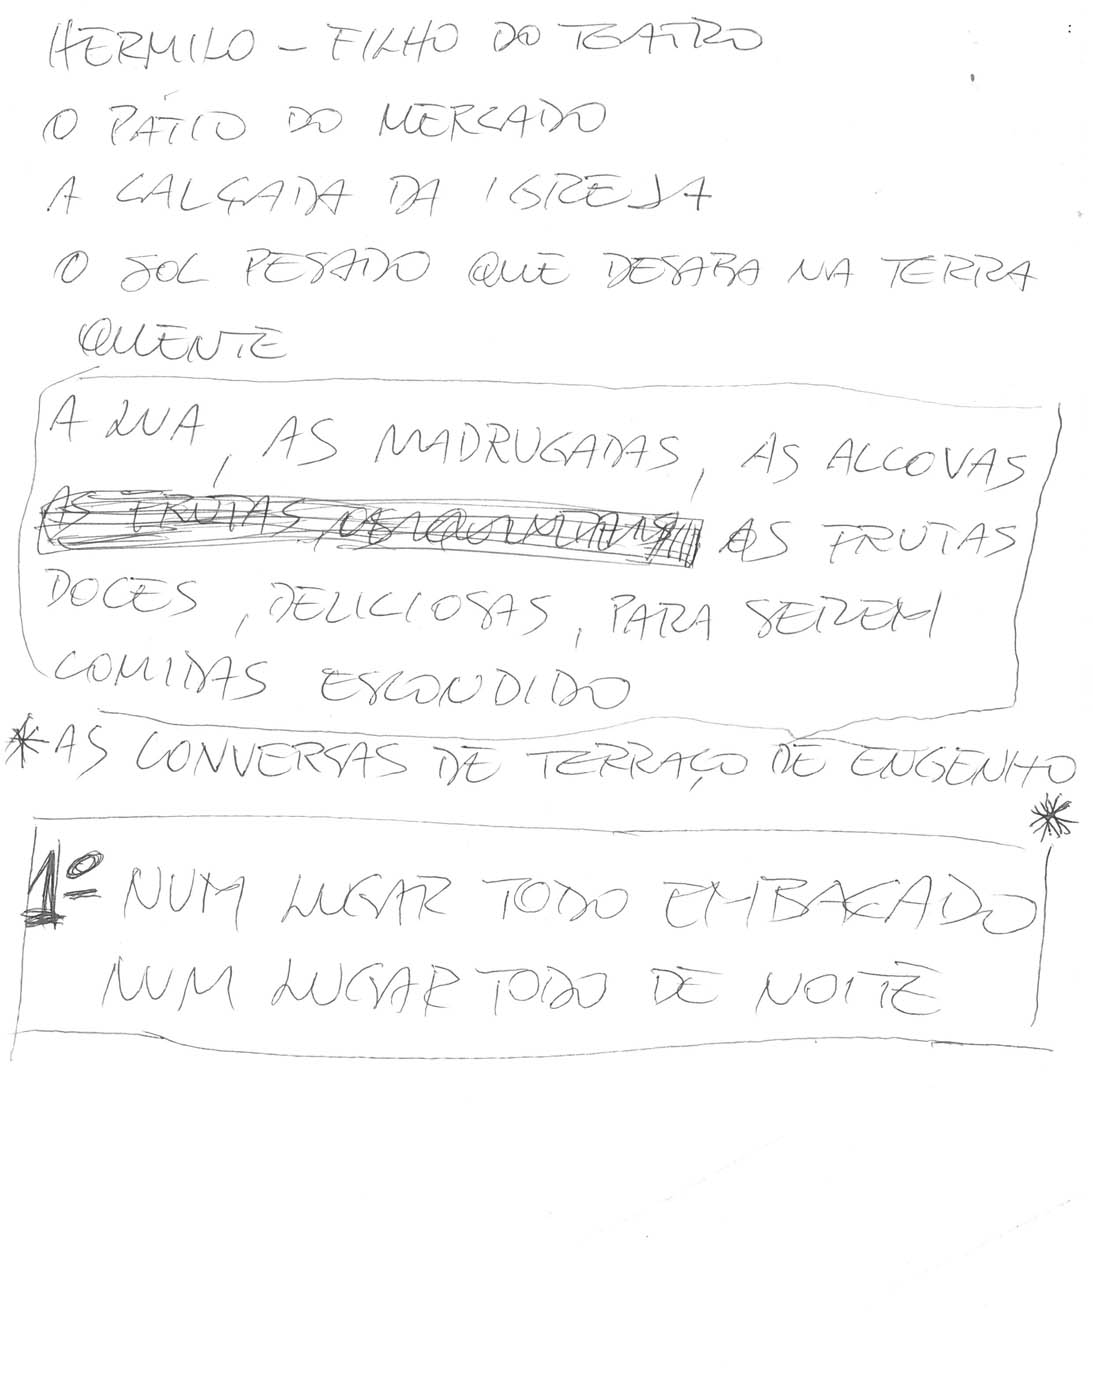 HERMILO – FILHO DO TEATRO
O PÁTIO DO MERCADO
A CALÇADA DA IGREJA
O SOL PESADO QUE DESABA NA TERRA
QUENTE
A LUA, AS MADRUGADAS, AS ALCOVAS
AS FRUTAS, AS FRUTAS
DOCES, DELICIOSAS, PARA SEREM
COMIDAS ESCONDIDO
*AS CONVERSAS DE TERRAÇO DE ENGENHO
*
1º NUM LUGAR TODO EMBAÇADO
NUM LUGAR TODO DE NOITE